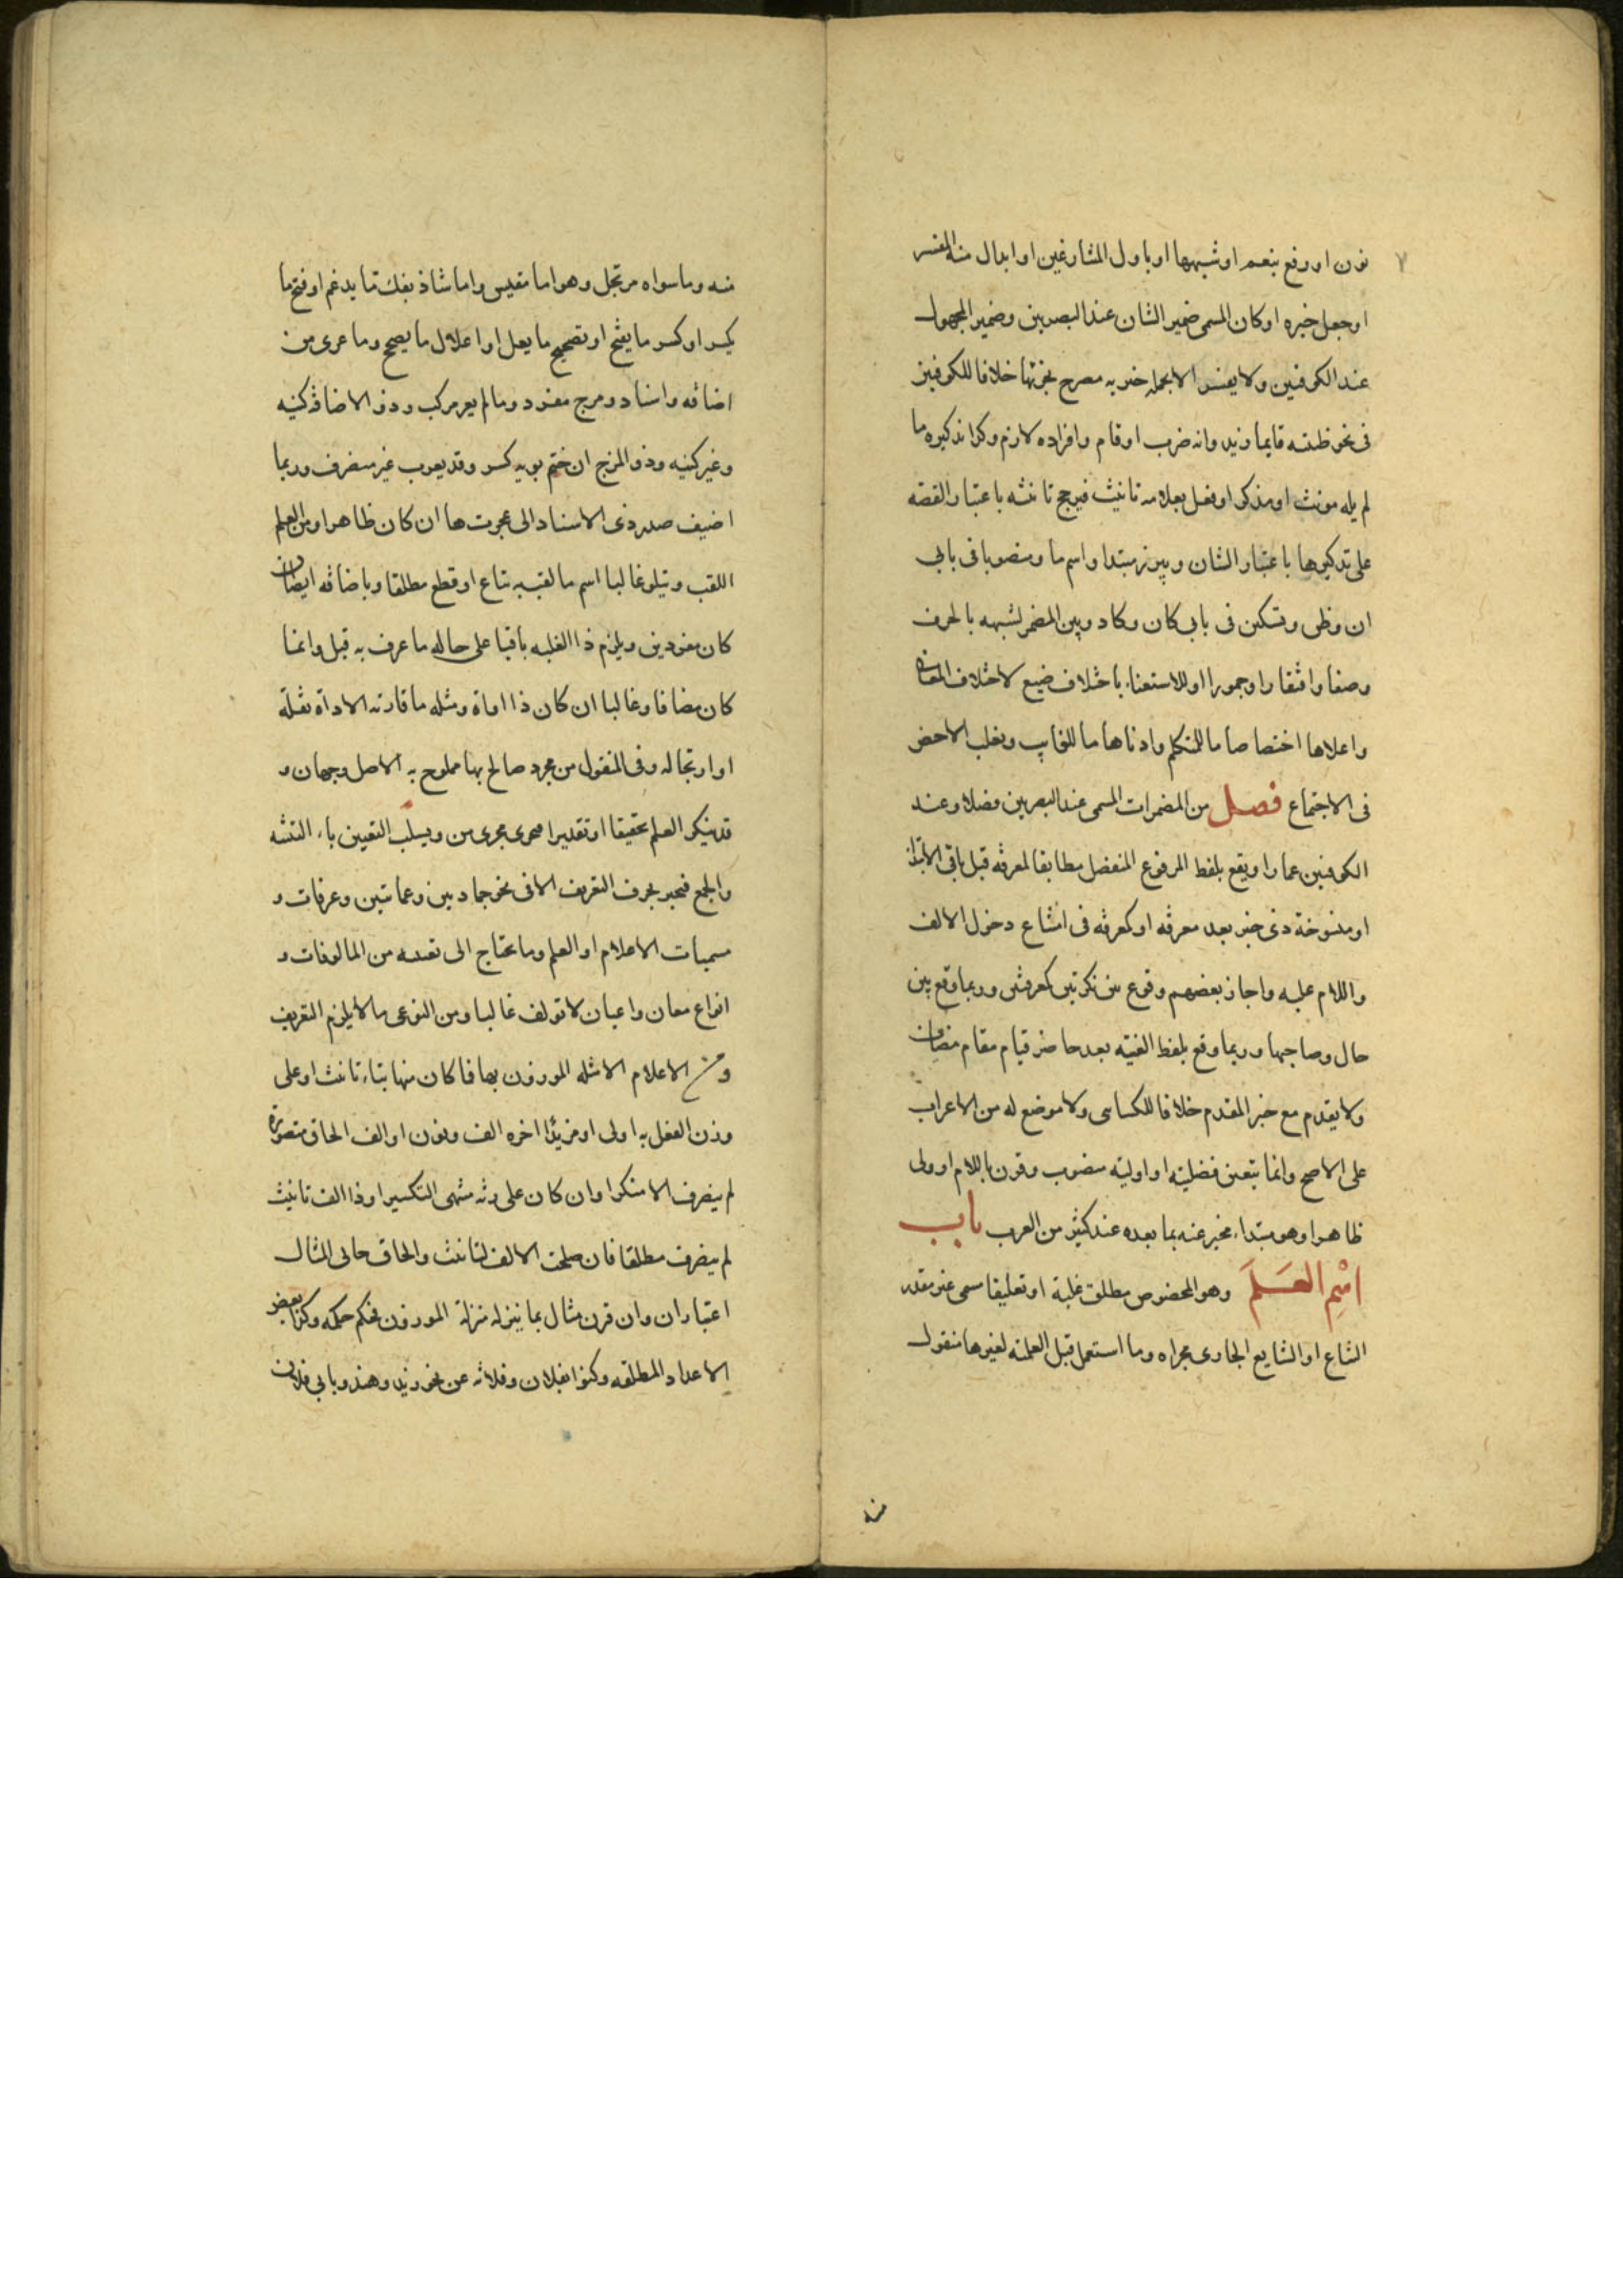 ٧
نون او رفع بنعم او شبهها او باول المتنازعين او ابدال منه المفسر
او جعل خبره او كان المسمى ضمير الشان عند البصريين وضمير المجهول
عند الكوفيين ولا يفسر الا بجمله خبريه مصرح بجزئها خلافا للكوفيين
فى نحو ظننته قايما زيد وانه ضرب او قام وافراده لازم وكذا تذكيره ما
لم يله مونث او مذكر او فعل بعلامه تانيث فيرجح تانيثه باعتبار القصه
على تذكيرها باعتبار الشان ويبرز مبتدا واسم ما ومنصوبا فى بابي
ان وظن ويستكن فى بابي كان وكاد وبني المضمر لشبهه بالحرف
وضعا وافتقارا وجمودا او للاستغناء باختلاف صيغ لاختلاف المعانى
واعلاها اختصاصا ما للمتكلم وادناها ما للغايب ويغلب الاخص
فى الاجتماع فصل من المضمرات المسمى عند البصريين فصلا وعند
الكوفيين عمادا ويقع بلفظ المرفوع المنفصل مطابقا لمعرفه قبل باقى الابتداء
او منسوخة ذى خبر بعد معرفه او كمعرفه فى امتناع دخول الالف
واللام عليه واجاز بعضهم وقوع بين نكرتين كمعرفتين وربما وقع بين
حال وصاحبها وربما وقع بلفظ الغيبه بعد حاضر قيام مقام مضاف
ولا يقدم مع خبر المقدم خلافا للكساى ولا موضع له من الاعراب
على الاصح وانما يتعين فصليته اذا وليه منصوب وقرن باللام او ولى
ظاهرا وهو مبتداء مخبر عنه بما بعده عند كثير من العرب باب
اسْمِ العَلَم وهو المخصوص مطلق غلبة او تعليقا مسمى غير مقدر
الشاع او الشايع الجارى مجراه وما استعمل قبل العلمية لغيرها منقول
منه
منه وما سواه مرتجل وهو اما مقيس واما شاذ بفك ما يدغم او فتح ما
يكسر او كسر ما يفتح او تصحيح ما يعل او اعلال ما يصح وما عرى من
اضافه واسناد ومزج مفرد وما لم يعر مركب وذو الاضافة كنيه
وغير كنيه وذو المزج ان ختم بويه كسر وقد يعرب غير منصرف وربما
اضيف صدر ذى الاسناد الى عجزه ان كان ظاهرا ومن العلم
اللقب ويتلو غالبا اسم ما لقب به بتاع او قطع مطلقا وباضافه ايضا ان
كان مفردين ويلزم ذا الغلبه باقيا على حاله ما عرف به قبل وانما
كان مضافا وغالبا ان كان ذا اداة ومثله ما قارنه الاداة نقله
او ارتجاله وفى المنقول من مجرد صالح بها ملموح به الاصل وجهان و
قد ينكر العلم تحقيقا او تقديرا فيجرى مجرى من ويسلب التعيين باء التثنيه
والجمع فيجبر بحرف التعريف الا فى نحو جماديين وعمايتين وعرفات و
مسميات الاعلام اولو العلم وما يحتاج الى تعينه من المالوفات و
انواع معان واعيان لا تولف غالبا ومن النوعى ما لا يلزم التعريف
ومن الاعلام الامثله الموزون بها فما كان منها بتاء تانيث او على
وزن الفعل به اولى او مزيدًا اخره الف ونون او الف الحاق مقصورة
لم ينصرف الا منكرا وان كان على زنه منتهى التكسير او ذا الف تانيث
لم ينصرف مطلقا فان صلحت الالف لتانيث والحاق جاز فى المثال
اعتباران وان قرن مثال بما ينزله منزلة الموزون فحكم حكمه وكذا بعض
الاعداد المطلقه وكنوا بفلان وفلانه عن نحو زيد وهند وبابي فلان